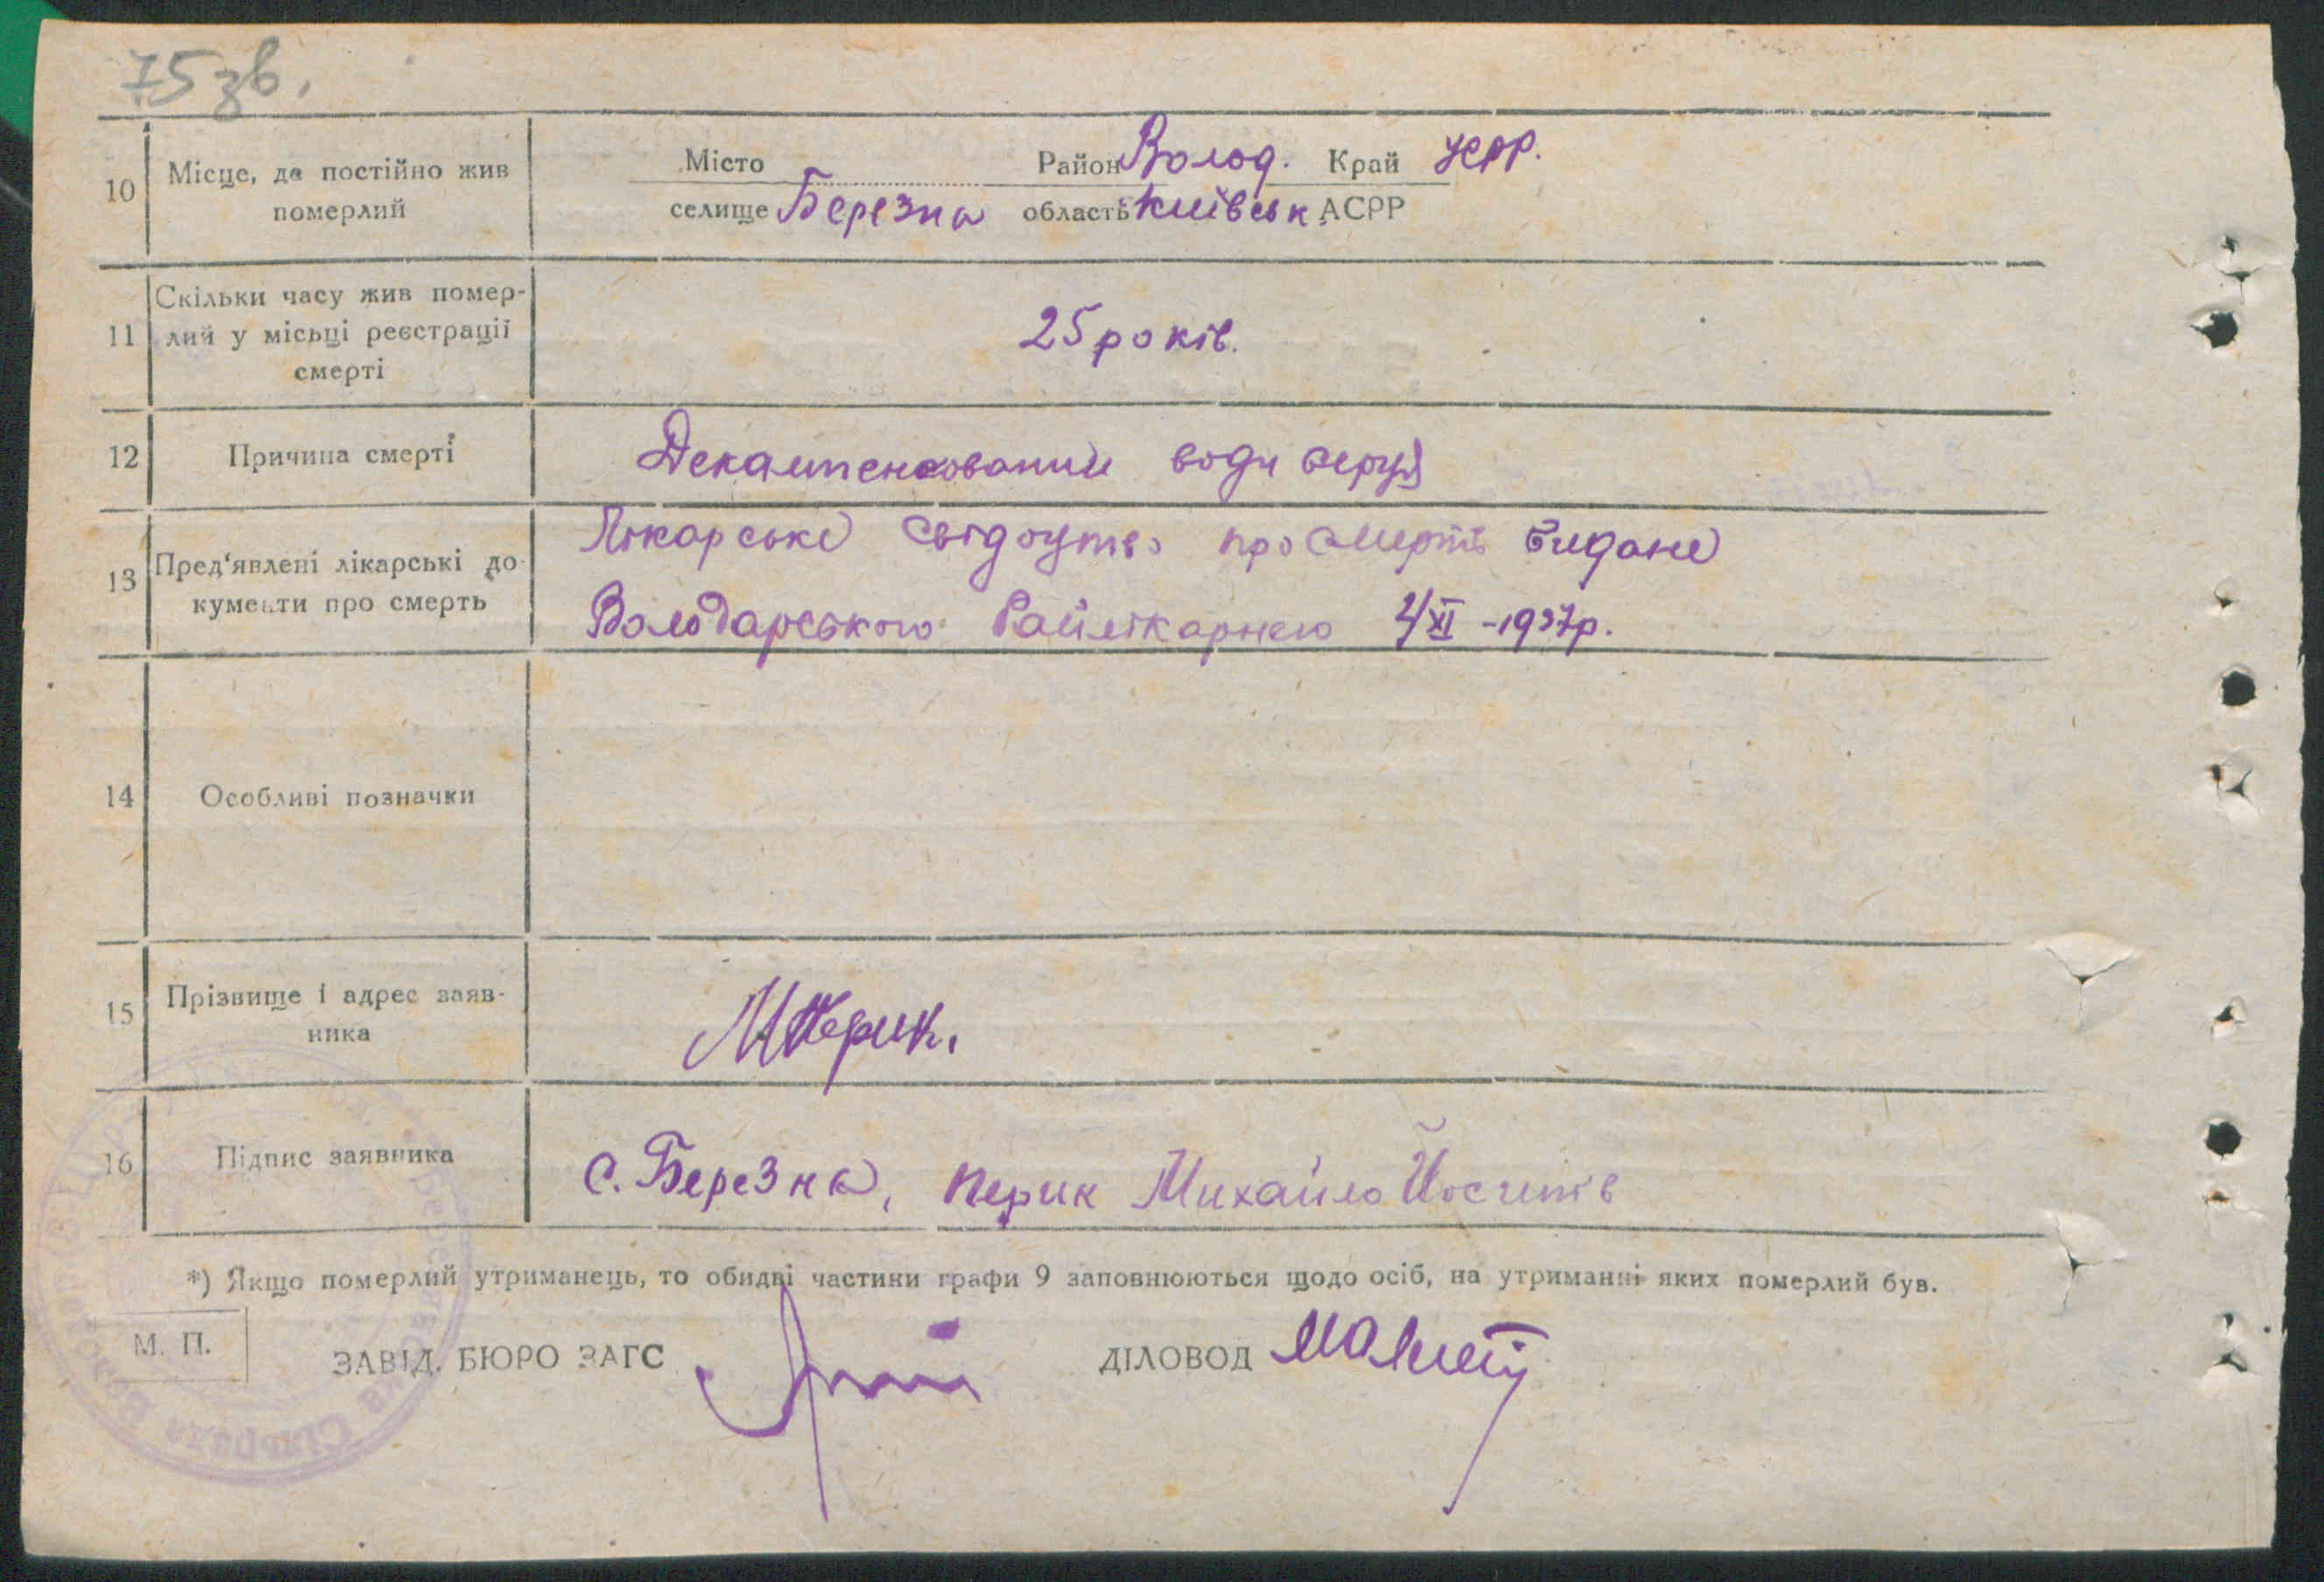 75 зв.
Місто Район Волод. Край УСРР.
10 Місце, де постійно жив
померлий
селище Березна область Київськ АСРР
Скільки часу жив помер-
11 лий у місьці реєстрації
смерті
25 років.
12 Причина смерті Декампенсований
13 Пред'явлені лікарські до-
кументи про смерть
Лікарське свідоцтво про смерть видане
Володарського Райлікарнею 2/XI -1937р.
14 Особливі позначки
15 Прізвище і адрес заяв-
ника
МПерик.
16 Підпис заявника с. Березна, Перик Михайло Йосипів
*) Якщо померлий утриманець, то обидві частини графи 9 заповнюються щодо осіб, на утриманні яких померлий був.
М. П.
ЗАВІД. БЮРО ЗАГС ДІЛОВОД
Сільрада